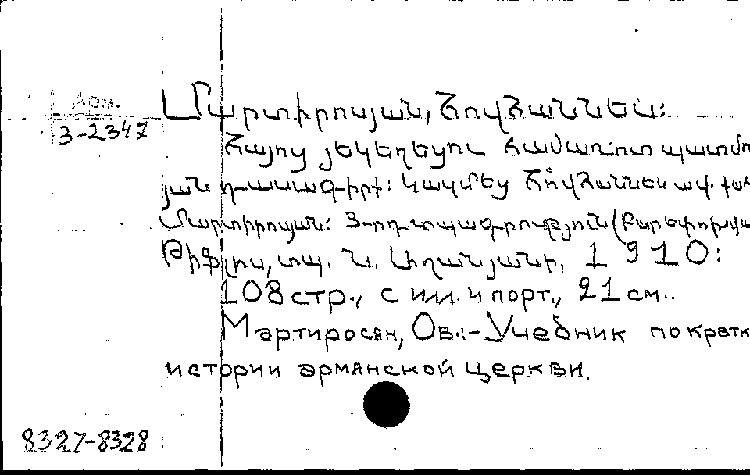 Арм.
3-2347
Մարտիրոսյան, Հովհաննես:
Հայոց յեկեղեցու համառոտ պատմո
յան դասագիրք: Կազմեց Հովհաննես ավ. քահ
Մարտիրոսյան: 3-րդ տպագրություն (Բարեփոխվա
Թիֆլիս, տպ. Ն. Աղանյանի, 1910:
108 стр., с илл. и порт., 21 см.
Мартиросян, Ов.:-Учебник по кратк
истории армянской церкви.
8327-8328